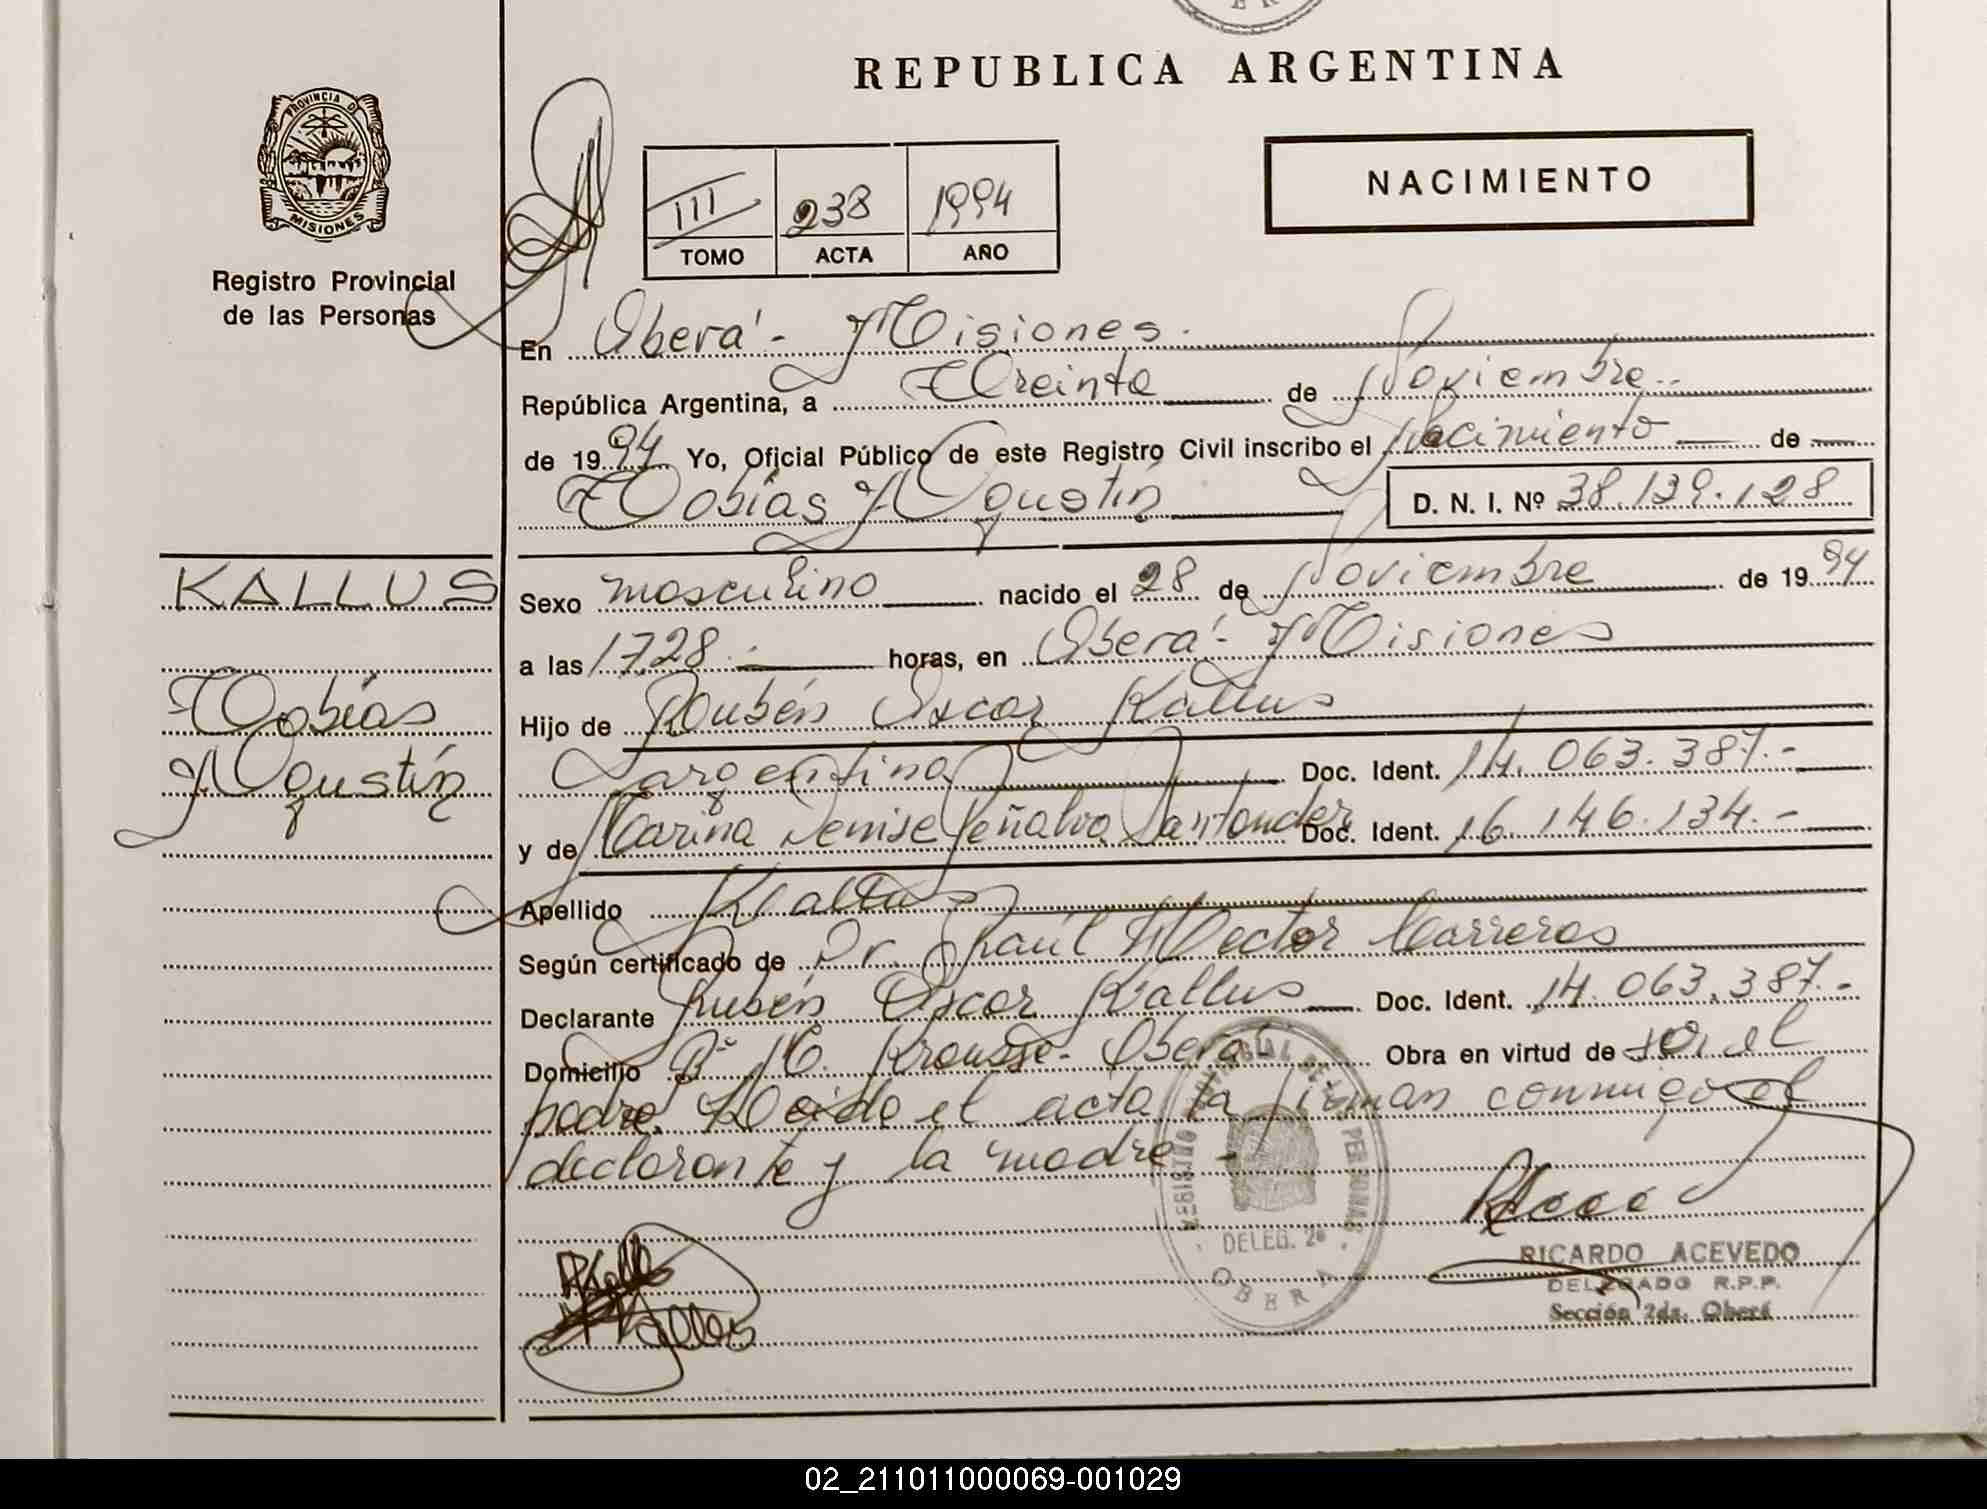 REPUBLICA ARGENTINA
PROVINCIA D
MISIONES
Registro Provincial
de las Personas
III 238 1994
TOMO ACTA AÑO
NACIMIENTO
En Oberá - Misiones.
República Argentina, a Treinta de Noviembre
de 1994 Yo, Oficial Público de este Registro Civil inscribo el Nacimiento de
Tobías Agustín D. N. I. Nº 38.139.128
KALLUS
Tobías
Agustín
Sexo masculino nacido el 28 de Noviembre de 1994
a las 1728 horas, en Oberá - Misiones
Hijo de Rubén Oscar Kallus
argentino Doc. Ident. 14.063.387.-
y de Marina Denise Peñalva Santander Doc. Ident. 16.146.134.-
Apellido Kallus
Según certificado de Dr. Raúl Hector Carreras
Declarante Rubén Oscar Kallus Doc. Ident. 14.063.387.-
Domicilio Bº Krausse - Oberá - Obra en virtud de ser el
padre. Leída el acta la firman conmigo el
declarante y la madre -
DE LAS PERSONAS
DELEG. 2ª
OBERA
RICARDO ACEVEDO
DELEGADO R.P.P.
Sección 2da. Oberá
02_211011000069-001029